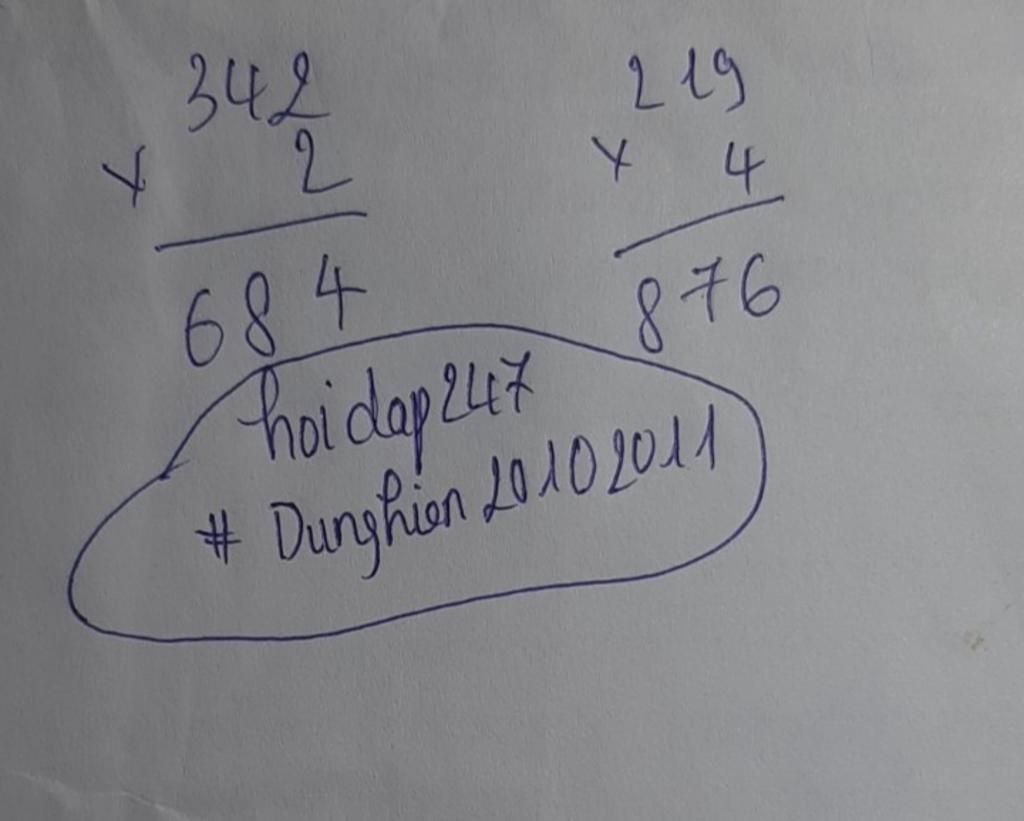 342
× 2
684
219
× 4
876
hoidap247
# Dunghien20102011